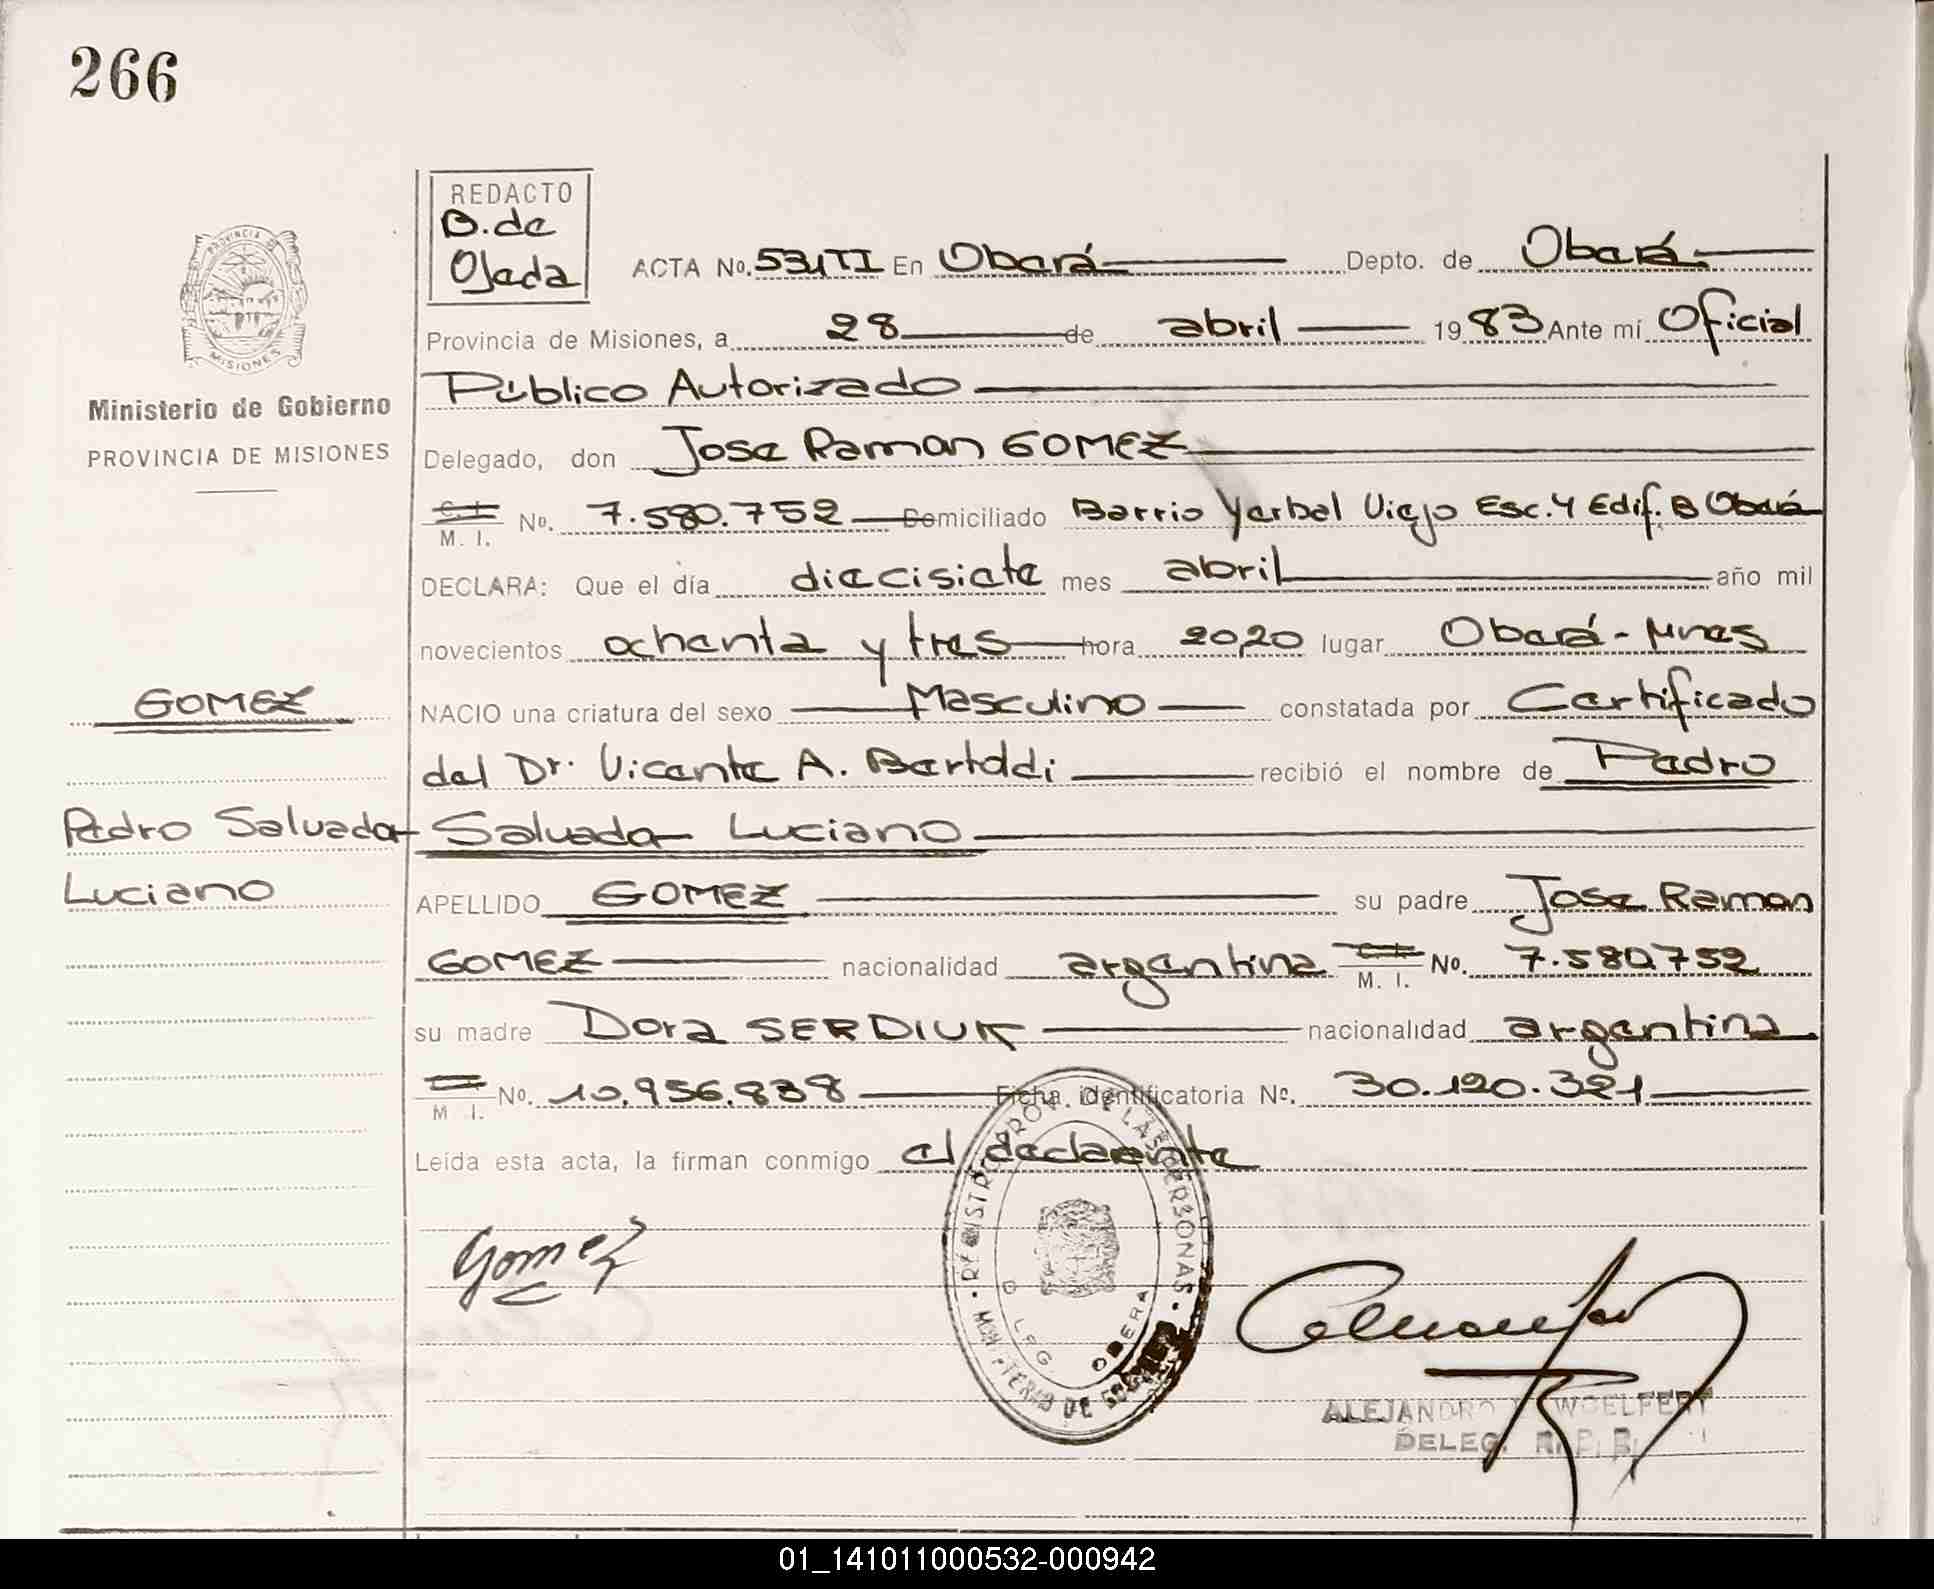 266
REDACTO
B. de
Ojeda
ACTA No. 531TI En Oberá Depto. de Oberá
Provincia de Misiones, a 28 de abril 1983 Ante mí Oficial
Público Autorizado
Delegado, don Jose Ramon GOMEZ
C. I.
M. I. No. 7.580.752 Domiciliado Barrio Yerbal Viejo Esc. 4 Edif. B Oberá
DECLARA: Que el día diecisiete mes abril año mil
novecientos ochenta y tres hora 20,20 lugar Oberá - Mnes
NACIO una criatura del sexo Masculino constatada por Certificado
del Dr. Vicente A. Bertoldi recibió el nombre de Pedro
Salvador Luciano
APELLIDO GOMEZ su padre Jose Ramon
GOMEZ nacionalidad argentina C. I. M. I. No. 7.580.752
su madre Dora SERDIUK nacionalidad argentina
M. I. No. 10.956.838 Ficha identificatoria No. 30.120.321
Leída esta acta, la firman conmigo el declarante
PROVINCIA DE
MISIONES
Ministerio de Gobierno
PROVINCIA DE MISIONES
GOMEZ
Pedro Salvador
Luciano
Gomez
REGISTRO PROV. DE LAS PERSONAS
MINISTERIO DE GOBIERNO
DELEG. OBERA
ALEJANDRO WOELFERT
DELEG. R. P.
01_141011000532-000942